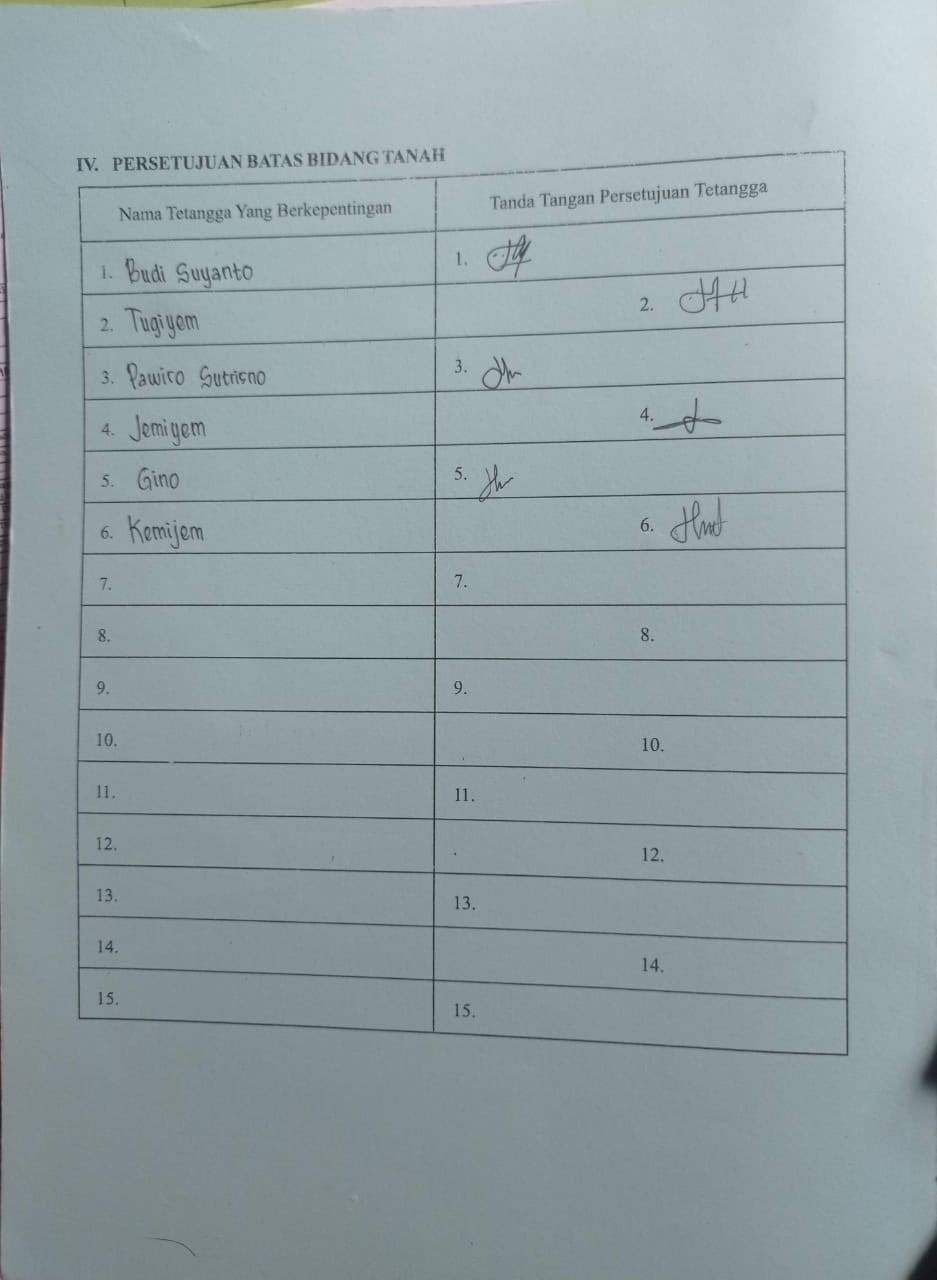 IV. PERSETUJUAN BATAS BIDANG TANAH
Nama Tetangga Yang Berkepentingan Tanda Tangan Persetujuan Tetangga
1. Budi Suyanto 1.
2. Tugiyem 2.
3. Pawiro Sutrisno 3.
4. Jemiyem 4.
5. Gino 5.
6. Kemijem 6.
7. 7.
8. 8.
9. 9.
10. 10.
11. 11.
12. 12.
13. 13.
14. 14.
15. 15.